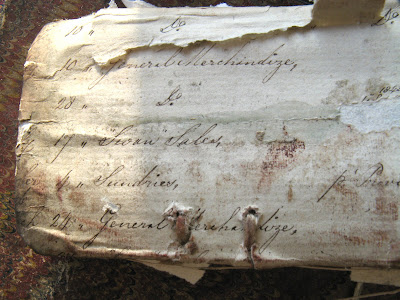 10 " Do Do
10 " General Merchandize,
28 " Do
17 " "Swan" Sales,
4 " Sundries,
24 " General Merchandize,